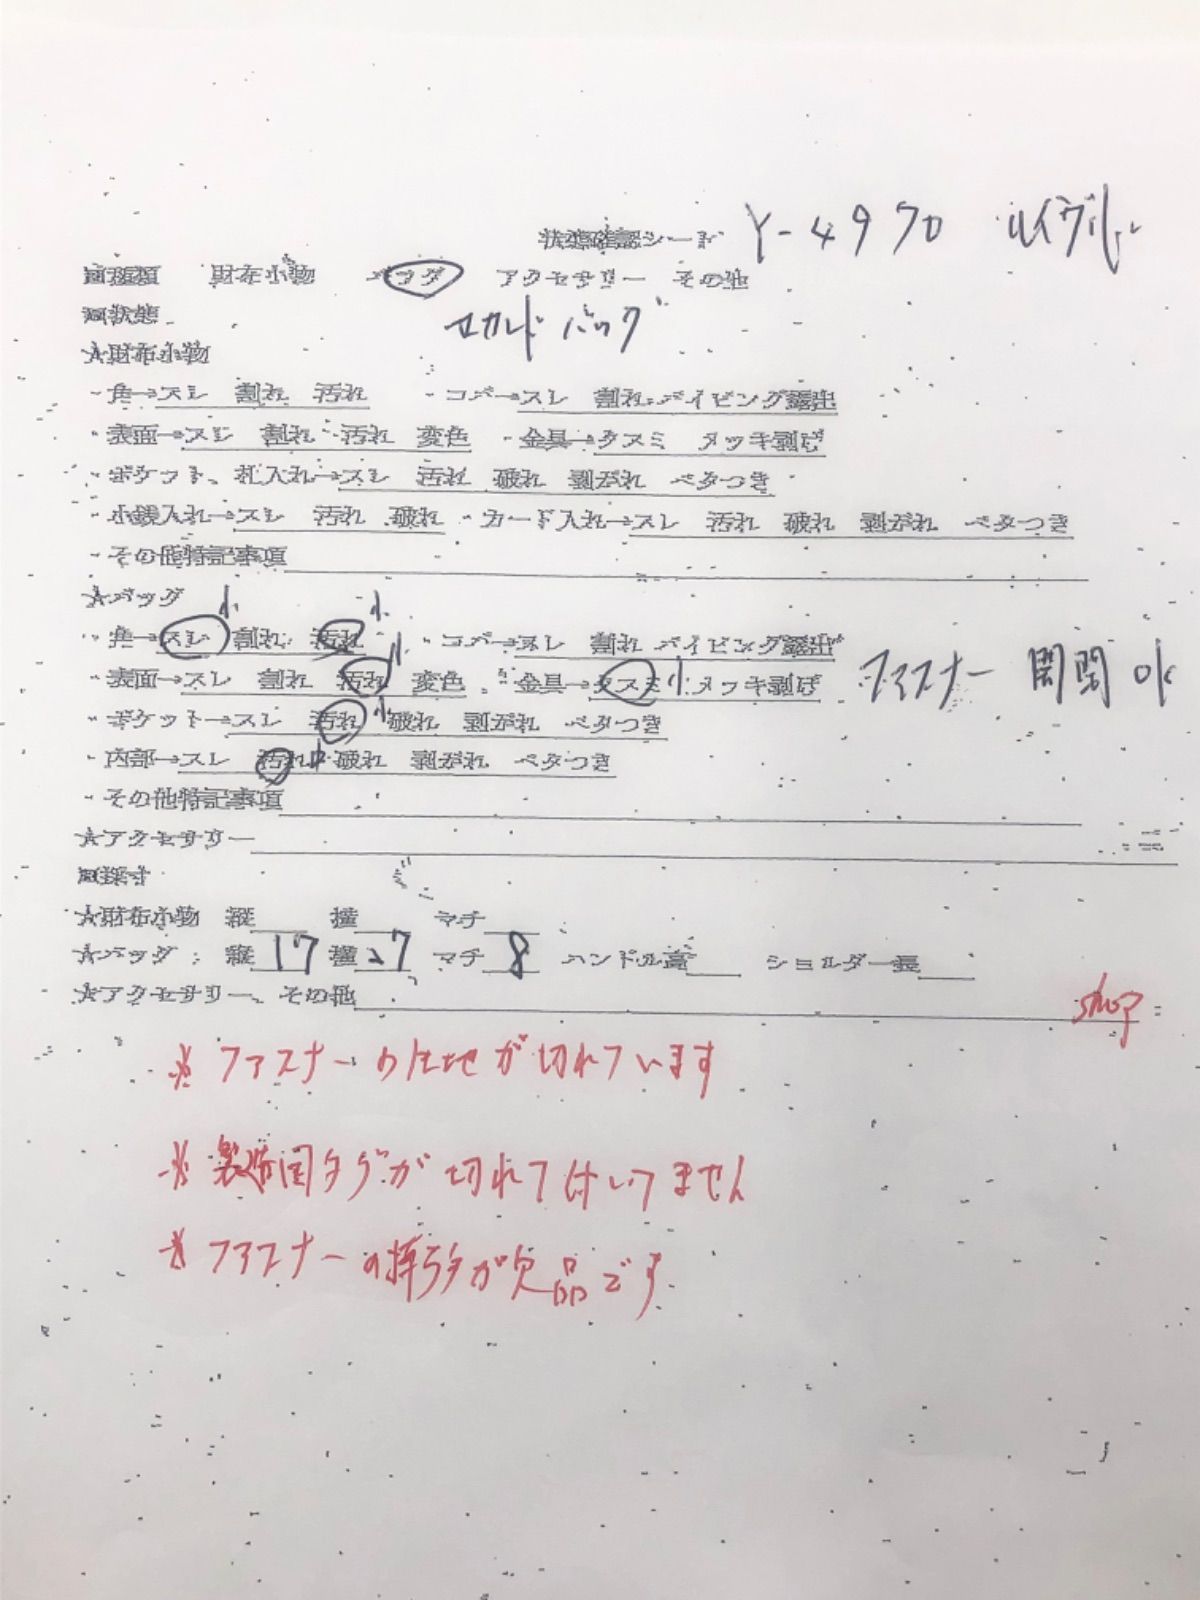 状態確認シート Y-4970 ルイヴィトン
回種類 財布小物 バッグ アクセサリー その他
回状態 セカンドバッグ
☆財布小物
・角→スレ 割れ 汚れ ・コバ→スレ 割れ パイピング露出
・表面→スレ 割れ 汚れ 変色 ・金具→クスミ メッキ剥げ
・ポケット、札入れ→スレ 汚れ 破れ 剥がれ ベタつき
・小銭入れ→スレ 汚れ 破れ ・カード入れ→スレ 汚れ 破れ 剥がれ ベタつき
・その他特記事項
☆バッグ
・角→スレ 小 割れ 汚れ 小 ・コバ→スレ 割れ パイピング露出
・表面→スレ 割れ 汚れ 小 変色 ・金具→クスミ 小 メッキ剥げ ファスナー 開閉 ok
・ポケット→スレ 汚れ 小 破れ 剥がれ ベタつき
・内部→スレ 汚れ 小 破れ 剥がれ ベタつき
・その他特記事項
☆アクセサリー
回採寸
☆財布小物 縦 横 マチ
☆バッグ: 縦 17 横 27 マチ 8 ハンドル高 ショルダー長
☆アクセサリー、その他
shop
※ ファスナーの生地が切れています
※ 製造国タグが切れて付いてません
※ ファスナーの持手が欠品です